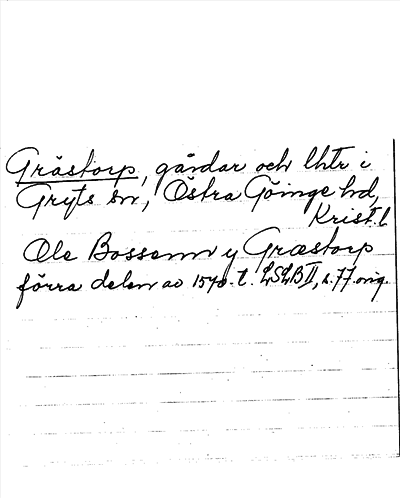 Grästorp, gårdar och lhtr i
Gryts sn, Östra Göinge hd,
Krist. l
Ole Bossenn y Græstorp
förra delen av 1570-t. LSLB II, s. 77. orig.